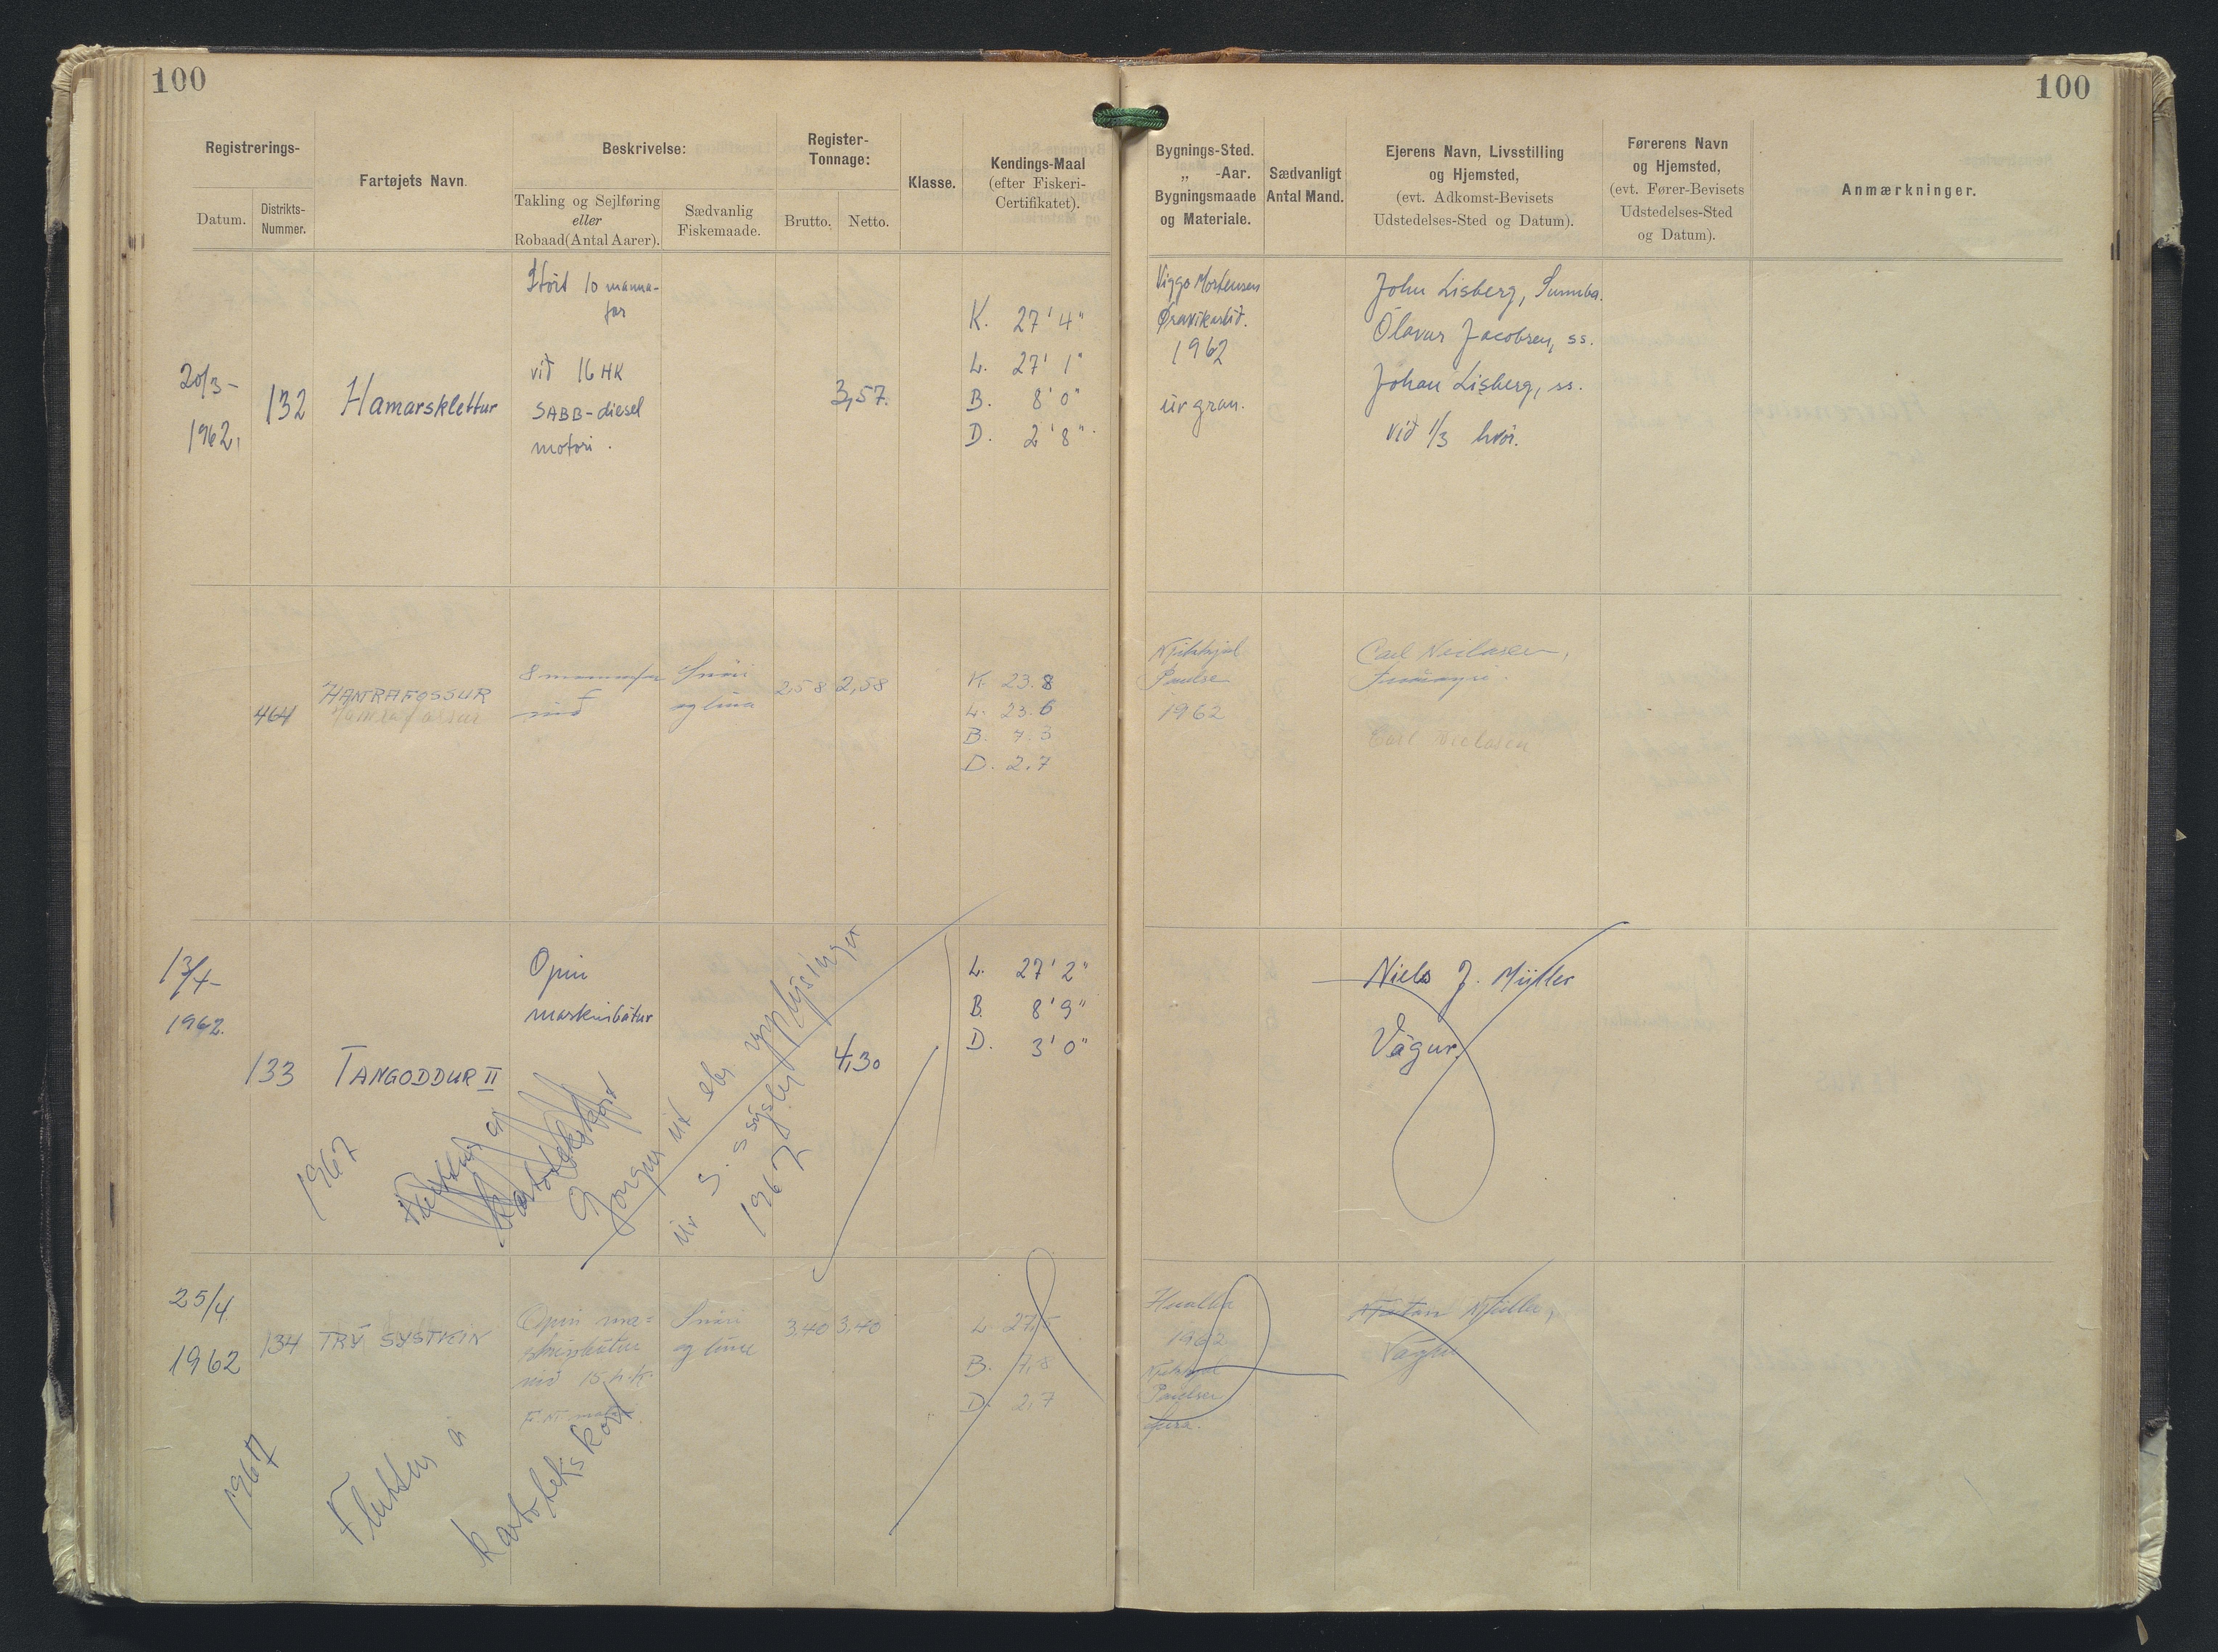 100
100
Registrerings-
Datum.
Distrikts-
Nummer.
Fartøjets Navn.
Beskrivelse:
Takling og Sejlføring
eller
Robaad (Antal Aarer).
Sædvanlig
Fiskemaade.
Register-
Tonnage:
Brutto.
Netto.
Klasse.
Kendings-Maal
(efter Fiskeri-
Certifikatet).
Bygnings-Sted.
„ -Aar.
Bygningsmaade
og Materiale.
Sædvanligt
Antal Mand.
Ejerens Navn, Livsstilling
og Hjemsted,
(evt. Adkomst-Bevisets
Udstedelses-Sted og Datum).
Førerens Navn
og Hjemsted,
(evt. Fører-Bevisets
Udstedelses-Sted
og Datum).
Anmærkninger.
20/3-
1962.
132
Hamarsklettur
Stórt 10 manna-
far
við 16 HK
SABB-diesel
motori.
3,57.
K. 27' 4"
L. 27' 1"
B. 8' 0"
D. 2' 8"
Viggo Mortensen
Øravikarlíð.
1962
úr gran.
John Lisberg, Sumba.
Ólavur Jacobsen, ss.
Johan Lisberg, ss.
við 1/3 hvør.
464
HAMRAFOSSUR
Hamrafossur
8 mannafar
við
Snøri
og línu
2,58
2,58
K. 23.8
L. 23.6
B. 7.3
D. 2.7
Poulsen
1962
Carl Nielasen,
Carl Nielasen
13/4-
1962.
133
TANGODDUR II
Opin
maskinbátur
4,30
L. 27' 2"
B. 8' 9"
D. 3' 0"
Niels J. Müller
Vágur.
1967
Fluttur á
kartotekskort
Gongur út sbr. upplýsingar
úr S. sýslu
1967
25/4.
1962
134
TRÝ SYSTKIN
Opin ma=
skinbátur
við 15 h.k.
Snøri
og línu
3,40
3,40
L. 27,5
B. 7,8
D. 2,7
Hvalba
1962
Poulsen
Müller,
Vágur
1967
Fluttur á
kartotekskort